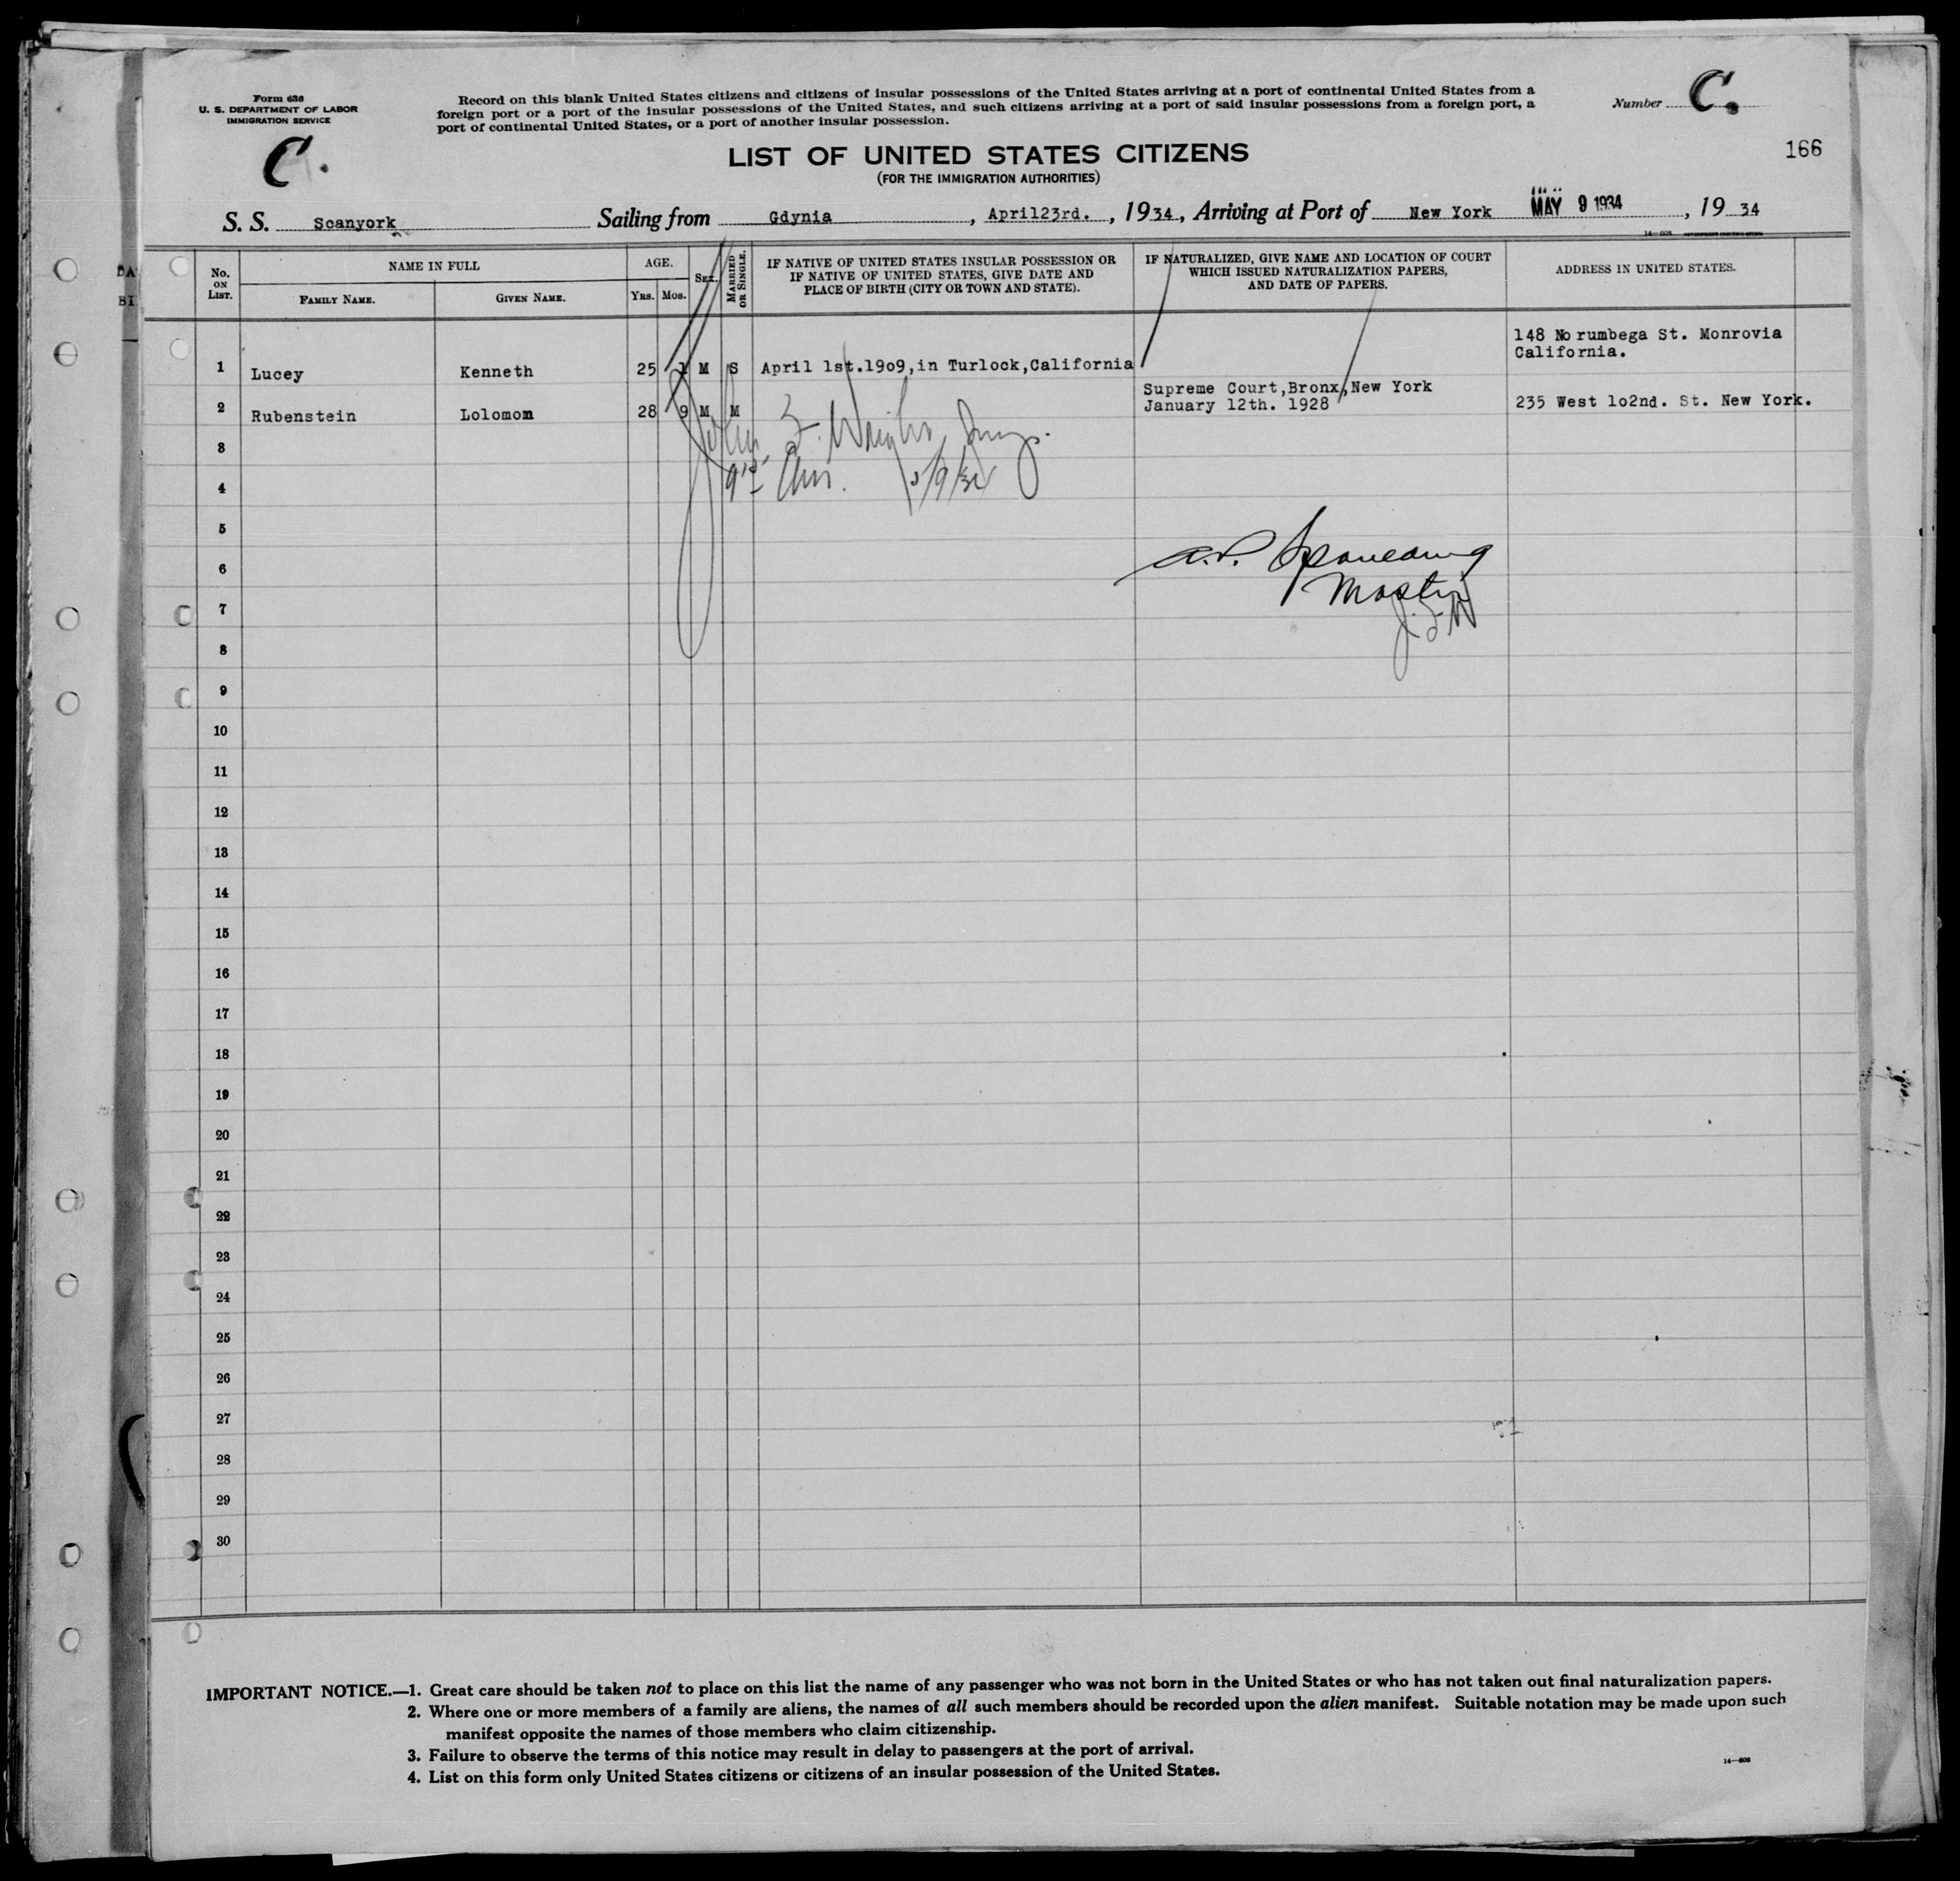 Form 636
U. S. DEPARTMENT OF LABOR
IMMIGRATION SERVICE
C.
Record on this blank United States citizens and citizens of insular possessions of the United States arriving at a port of continental United States from a
foreign port or a port of the insular possessions of the United States, and such citizens arriving at a port of said insular possessions from a foreign port, a
port of continental United States, or a port of another insular possession.
Number C.
166
LIST OF UNITED STATES CITIZENS
(FOR THE IMMIGRATION AUTHORITIES)
S. S. Scanyork Sailing from Gdynia, April23rd., 1934, Arriving at Port of New York MAY 9 1934, 19 34
No. ON LIST.
NAME IN FULL
FAMILY NAME.
GIVEN NAME.
AGE.
YRS.
MOS.
SEX.
MARRIED OR SINGLE.
IF NATIVE OF UNITED STATES INSULAR POSSESSION OR
IF NATIVE OF UNITED STATES, GIVE DATE AND
PLACE OF BIRTH (CITY OR TOWN AND STATE).
IF NATURALIZED, GIVE NAME AND LOCATION OF COURT
WHICH ISSUED NATURALIZATION PAPERS,
AND DATE OF PAPERS.
ADDRESS IN UNITED STATES.
148 No rumbega St. Monrovia
California.
1 Lucey Kenneth 25 1 M S April 1st.19o9,in Turlock,California
Supreme Court,Bronx,New York
January 12th. 1928
2 Rubenstein Lolomom 28 9 M M 235 West 1o2nd. St. New York.
3
4
5/9/34
5
6
7
8
9
10
11
12
13
14
15
16
17
18
19
20
21
22
23
24
25
26
27
28
29
30
IMPORTANT NOTICE.—1. Great care should be taken not to place on this list the name of any passenger who was not born in the United States or who has not taken out final naturalization papers.
2. Where one or more members of a family are aliens, the names of all such members should be recorded upon the alien manifest. Suitable notation may be made upon such
manifest opposite the names of those members who claim citizenship.
3. Failure to observe the terms of this notice may result in delay to passengers at the port of arrival.
4. List on this form only United States citizens or citizens of an insular possession of the United States.
14—608